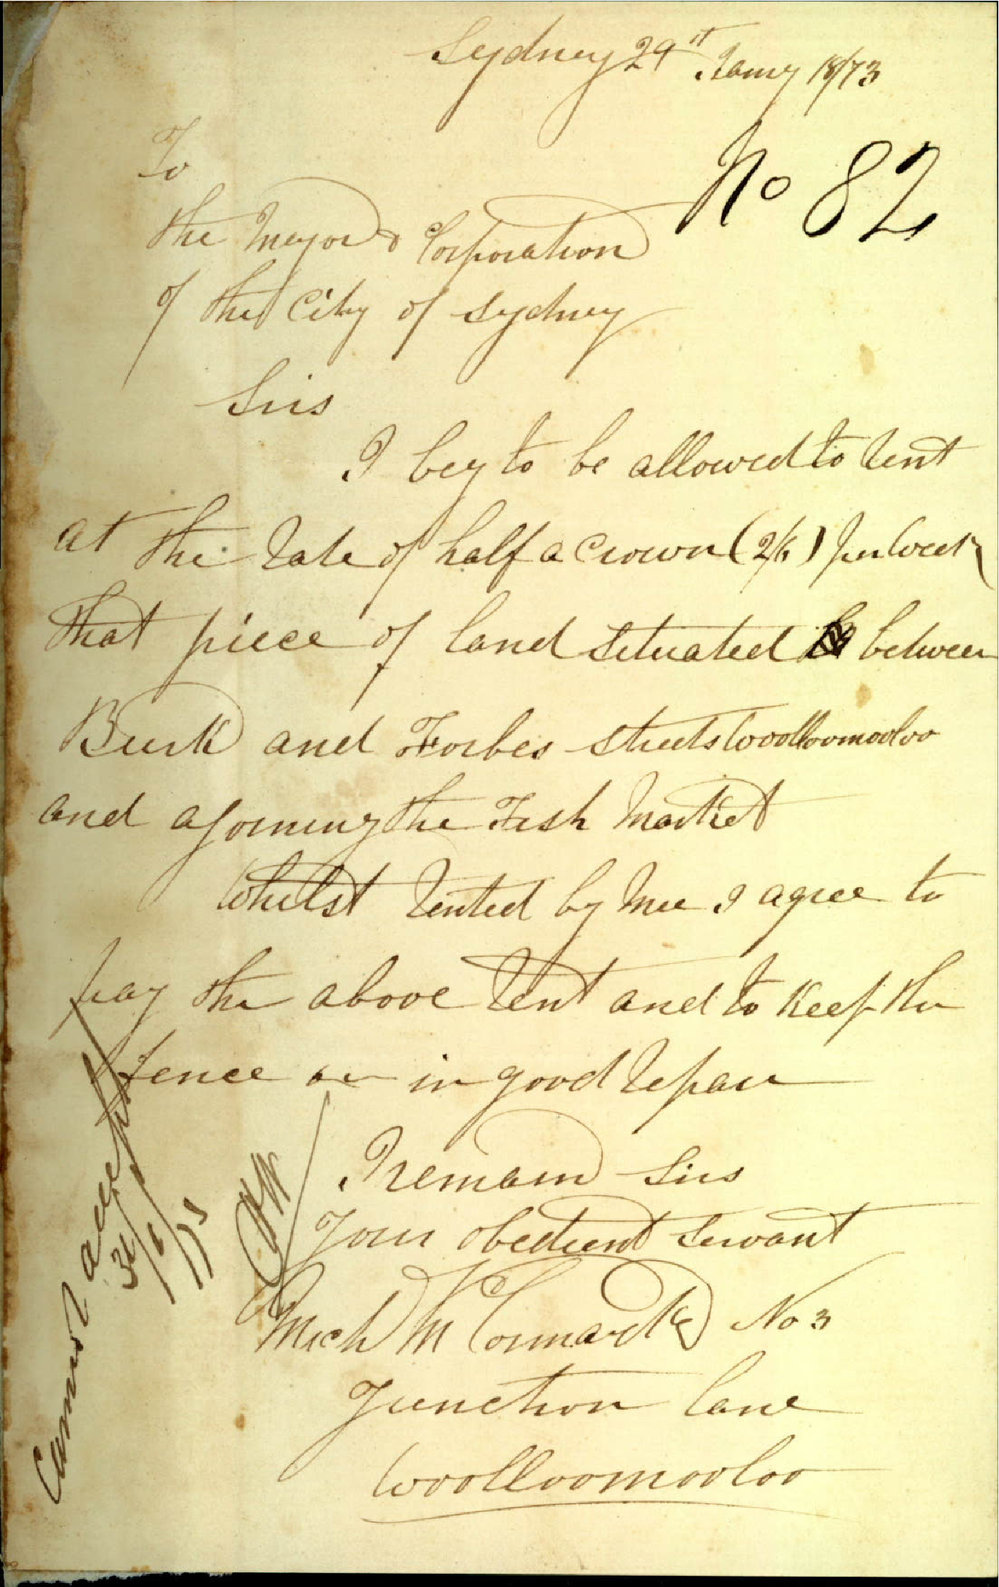 Sydney 29st Jany 1873
No 82
To
the Meyor & Corporation
of the City of Sydney
Sirs
I beg to be allowed to Rent
at the Rate of half a Crown (2/6) per Week
that piece of land situated between
Burk and Forbes streets Woolloomooloo
and ajoining the Fish Market
Whilst Rented by Mee I agree to
pay the above Rent and to Keep the
fence in good Repair
I remain Sirs
Your obedient servant
Mich McCormack No 3
Junction Lane
Woolloomooloo
Cannot accept